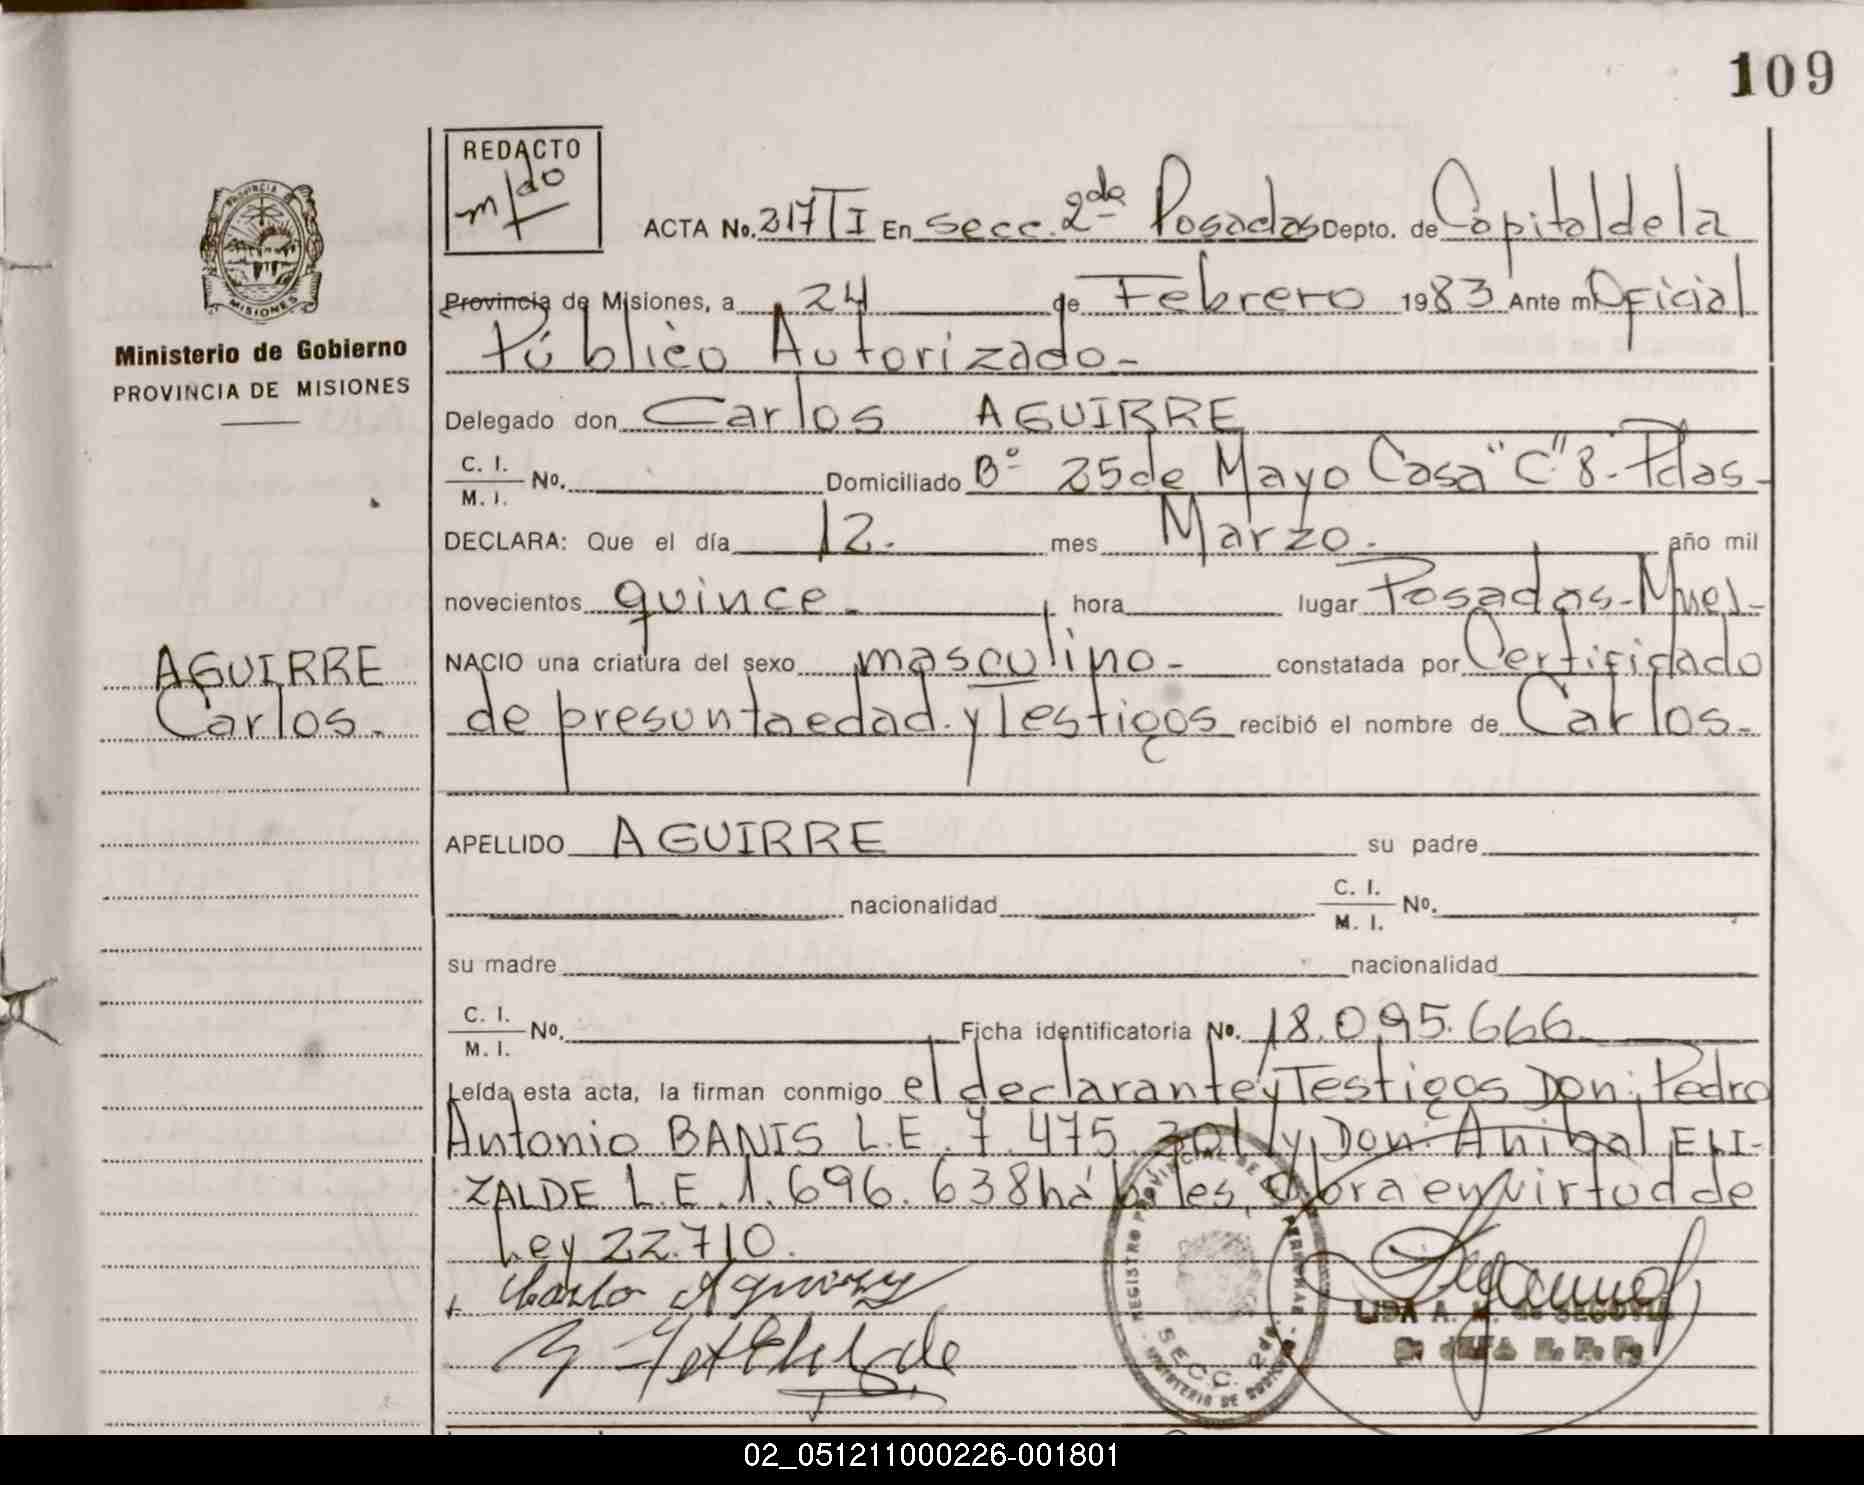 109
REDACTO
m/do
ACTA No. 217 T I En Secc. 2da Posadas Depto. de Capital de la
Provincia de Misiones, a 24 de Febrero 1983 Ante mi Oficial
Público Autorizado-
Ministerio de Gobierno
PROVINCIA DE MISIONES
Delegado don Carlos AGUIRRE
C. I. / M. I. No. Domiciliado Bº 25 de Mayo Casa "C" 8- Pdas-
DECLARA: Que el día 12. mes Marzo. año mil
novecientos quince. hora lugar Posadas-Mnes-
AGUIRRE
Carlos.
NACIO una criatura del sexo masculino- constatada por Certificado
de presunta edad. y Testigos recibió el nombre de Carlos-
APELLIDO AGUIRRE su padre
nacionalidad C. I. / M. I. No.
su madre nacionalidad
C. I. / M. I. No. Ficha identificatoria No. 18.095.666
Leída esta acta, la firman conmigo el declarante y Testigos Don: Pedro
Antonio BANIS L.E. 7.475.201 y Don: Anibal ELI-
ZALDE L.E. 1.696.638 hábiles, obra en virtud de
Ley 22.710.
Carlos Aguirre
REGISTRO PROVINCIAL DE LAS PERSONAS
SECC. 2da.
LIDA A. M. de SEGOVIA
02_051211000226-001801